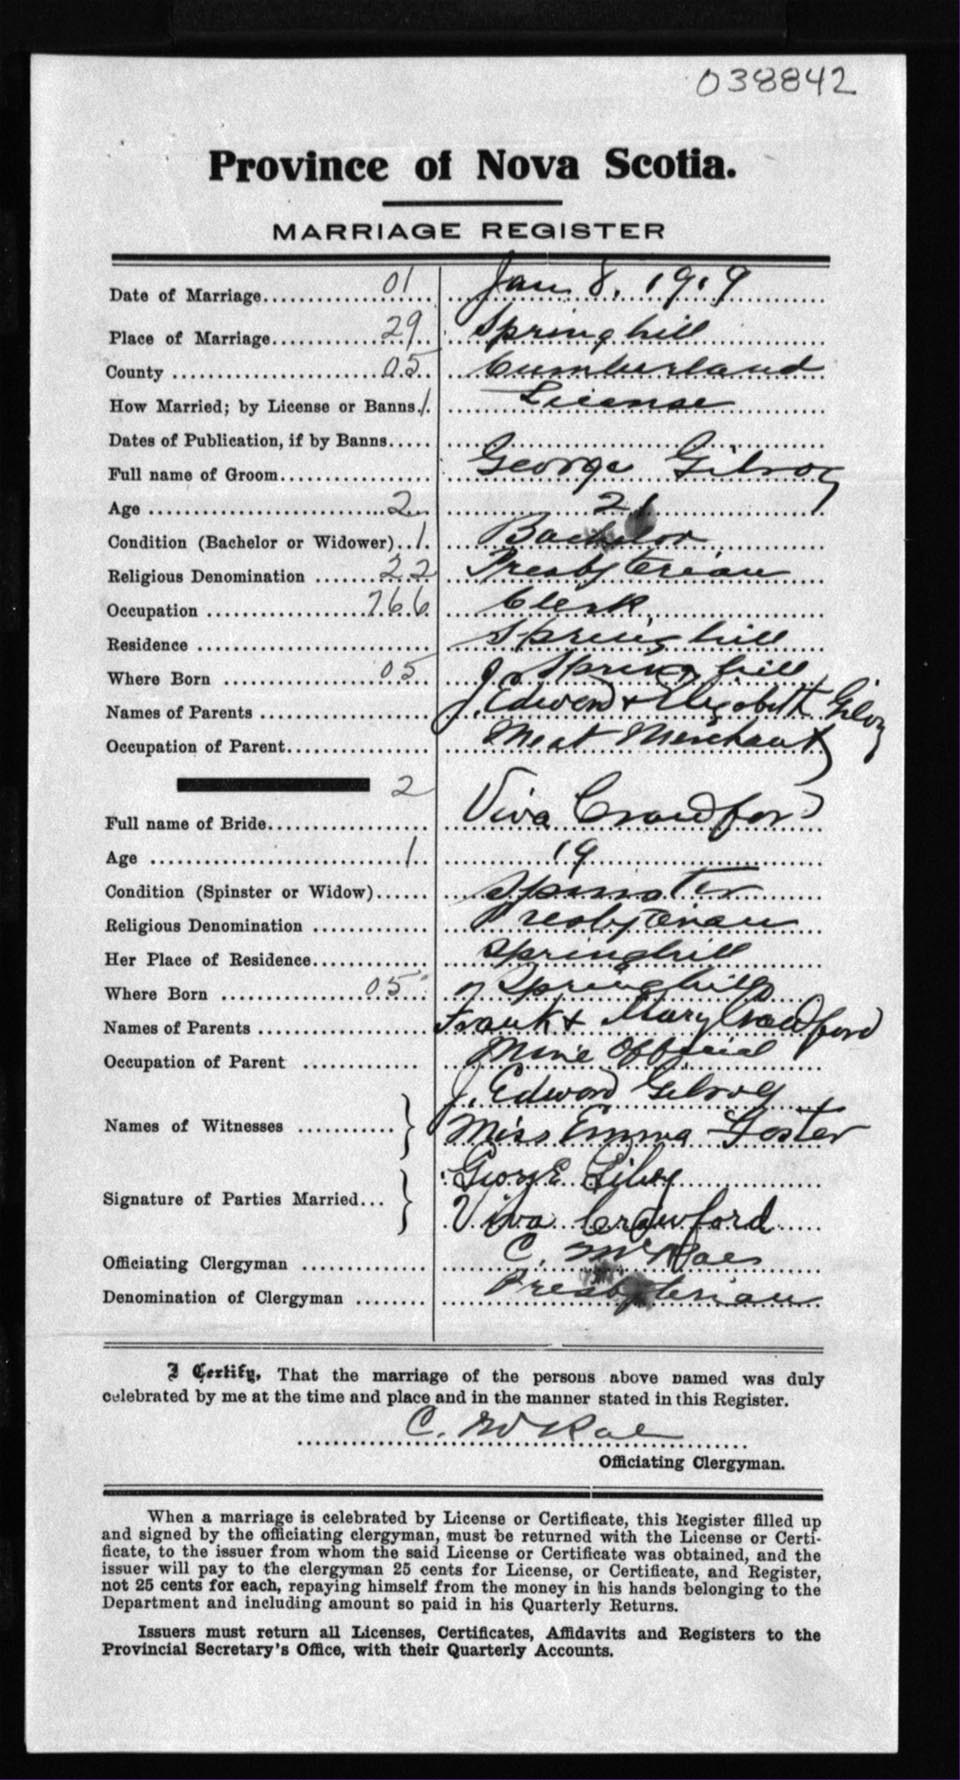 038842
Province of Nova Scotia.
MARRIAGE REGISTER
Date of Marriage 01 Jan 8, 1919
Place of Marriage 29 Springhill
County 05 Cumberland
How Married; by License or Banns 1 License
Dates of Publication, if by Banns
Full name of Groom George Gilroy
Age 2 21
Condition (Bachelor or Widower) 1 Bachelor
Religious Denomination 22 Presbyterian
Occupation 766 Clerk
Residence Springhill
Where Born 05 Springhill
Names of Parents J. Edward & Elizabeth Gilroy
Occupation of Parent Meat Merchant
2
Full name of Bride Viva Crawford
Age 1 19
Condition (Spinster or Widow) Spinster
Religious Denomination Presbyterian
Her Place of Residence Springhill
Where Born 05 Springhill
Names of Parents Frank & Mary Crawford
Occupation of Parent Mine Official
J. Edward Gilroy
Names of Witnesses
Miss Emma Foster
George Gilroy
Signature of Parties Married
Viva Crawford
Officiating Clergyman C. McRae
Denomination of Clergyman Presbyterian
I Certify, That the marriage of the persons above named was duly
celebrated by me at the time and place and in the manner stated in this Register.
C. McRae
Officiating Clergyman.
When a marriage is celebrated by License or Certificate, this Register filled up
and signed by the officiating clergyman, must be returned with the License or Certi-
ficate, to the issuer from whom the said License or Certificate was obtained, and the
issuer will pay to the clergyman 25 cents for License, or Certificate, and Register,
not 25 cents for each, repaying himself from the money in his hands belonging to the
Department and including amount so paid in his Quarterly Returns.
Issuers must return all Licenses, Certificates, Affidavits and Registers to the
Provincial Secretary's Office, with their Quarterly Accounts.